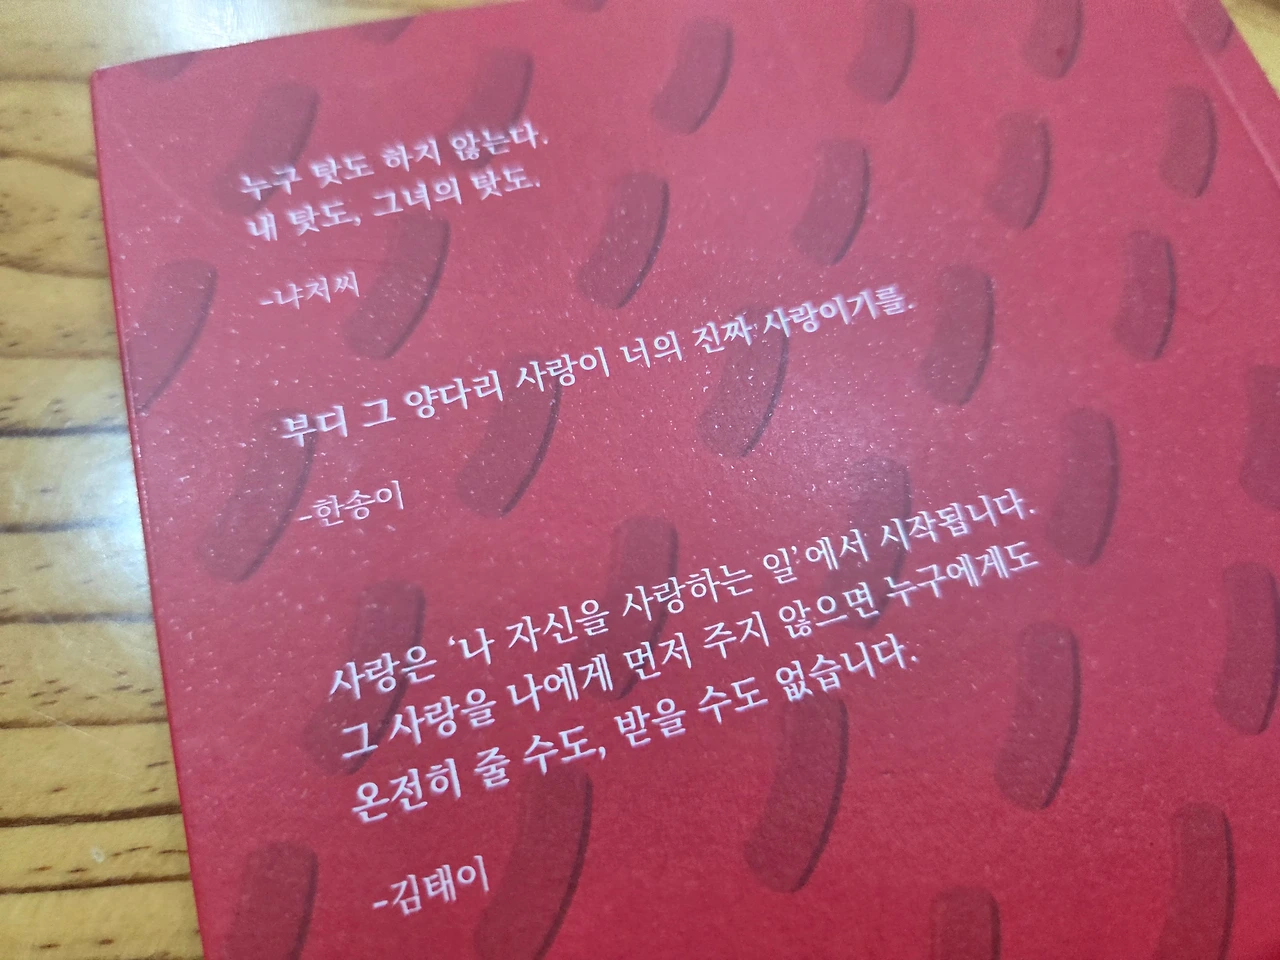 누구 탓도 하지 않는다.
내 탓도, 그녀의 탓도.
-냐저씨
부디 그 양다리 사랑이 너의 진짜 사랑이기를.
-한송이
사랑은 ‘나 자신을 사랑하는 일’에서 시작됩니다.
그 사랑을 나에게 먼저 주지 않으면 누구에게도
온전히 줄 수도, 받을 수도 없습니다.
-김태이